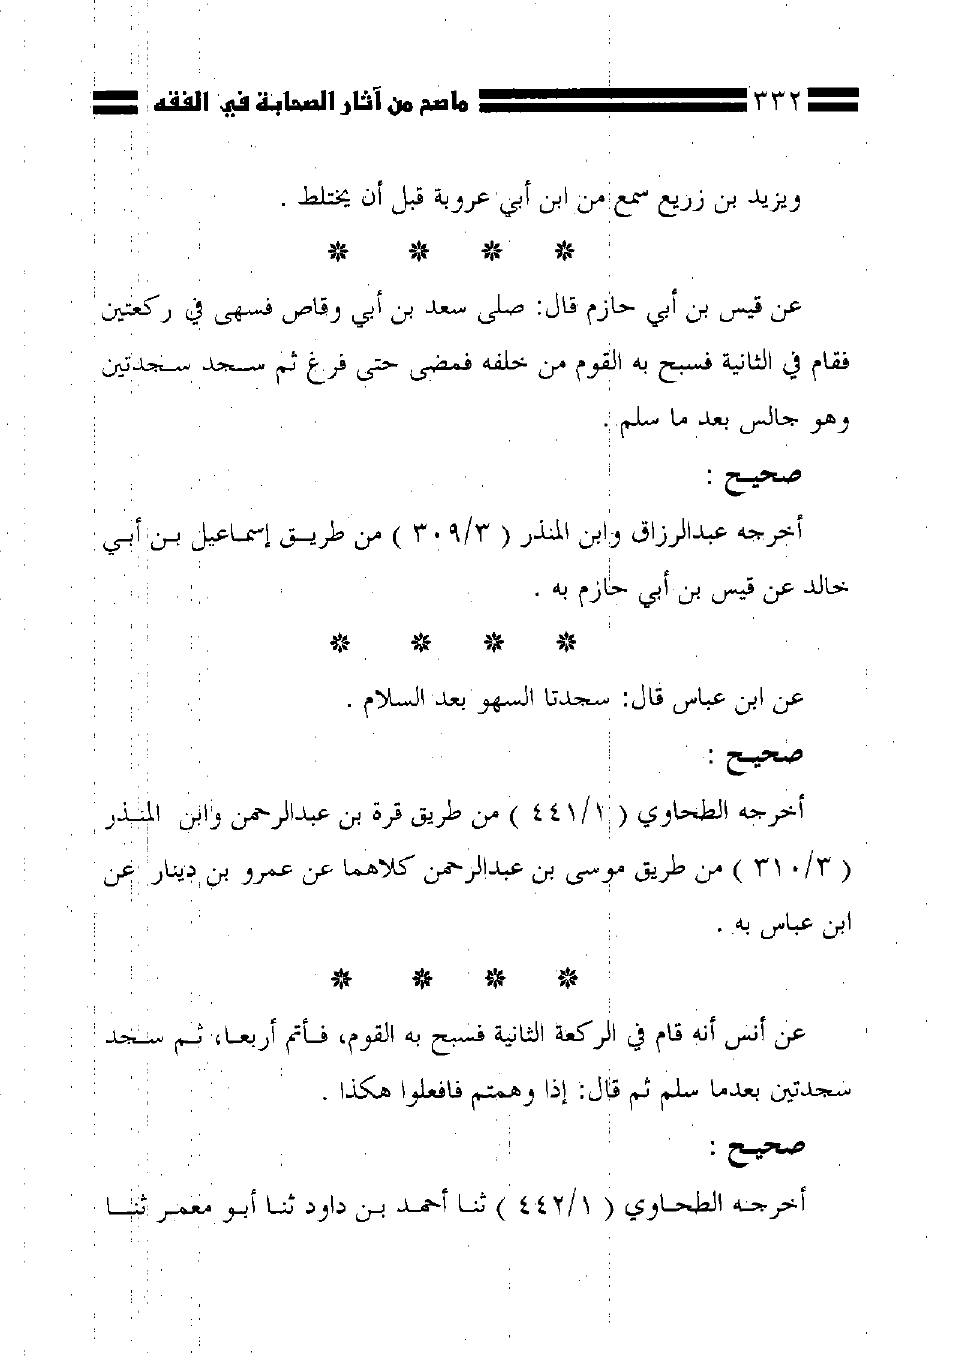 ٣٣٢ ماصح من آثار الصحابة في الفقه
ويزيد بن زريع سمع من ابن أبي عروبة قبل أن يختلط .
* * * *
عن قيس بن أبي حازم قال: صلى سعد بن أبي وقاص فسهى في ركعتين
فقام في الثانية فسبح به القوم من خلفه فمضى حتى فرغ ثم سجد سجدتين
وهو جالس بعد ما سلم .
صحيح :
أخرجه عبدالرزاق وابن المنذر ( ٣٠٩/٣ ) من طريق إسماعيل بن أبي
خالد عن قيس بن أبي حازم به .
* * * *
عن ابن عباس قال: سجدتا السهو بعد السلام .
صحيح :
أخرجه الطحاوي ( ٤٤١/١ ) من طريق قرة بن عبدالرحمن وابن المنذر
( ٣١٠/٣ ) من طريق موسى بن عبدالرحمن كلاهما عن عمرو بن دينار عن
ابن عباس به .
* * * *
عن أنس أنه قام في الركعة الثانية فسبح به القوم، فأتم أربعا، ثم سجد
سجدتين بعدما سلم ثم قال: إذا وهمتم فافعلوا هكذا .
صحيح :
أخرجه الطحاوي ( ٤٤٢/١ ) ثنا أحمد بن داود ثنا أبو معمر ثنا